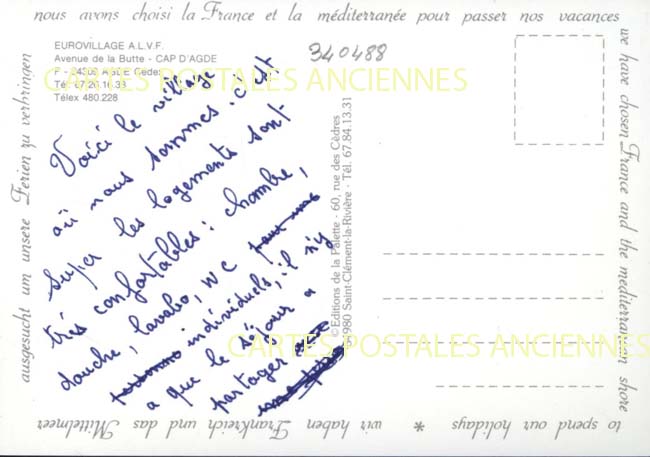 nous avons choisi la France et la méditerranée pour passer nos vacances
EUROVILLAGE A.L.V.F.
Avenue de la Butte - CAP D'AGDE
F - 34305 AGDE Cedex
Tél. 67.26.16.33
Télex 480.228
340488
CARTES POSTALES ANCIENNES
Voici le village
où nous sommes. c'est
super les logements sont
très confortables : chambre,
douche, lavabo, WC
individuels, il n'y
a que le séjour a
partager
© Editions de la Palette - 60, rue des Cèdres
34980 Saint-Clément-la-Rivière - Tél. 67.84.13.31
CARTES POSTALES ANCIENNES
we have chosen France and the mediterranean shore
to spend our holidays *
wir haben Frankreich und das Mittelmeer
ausgesucht um unsere Ferien zu verbringen